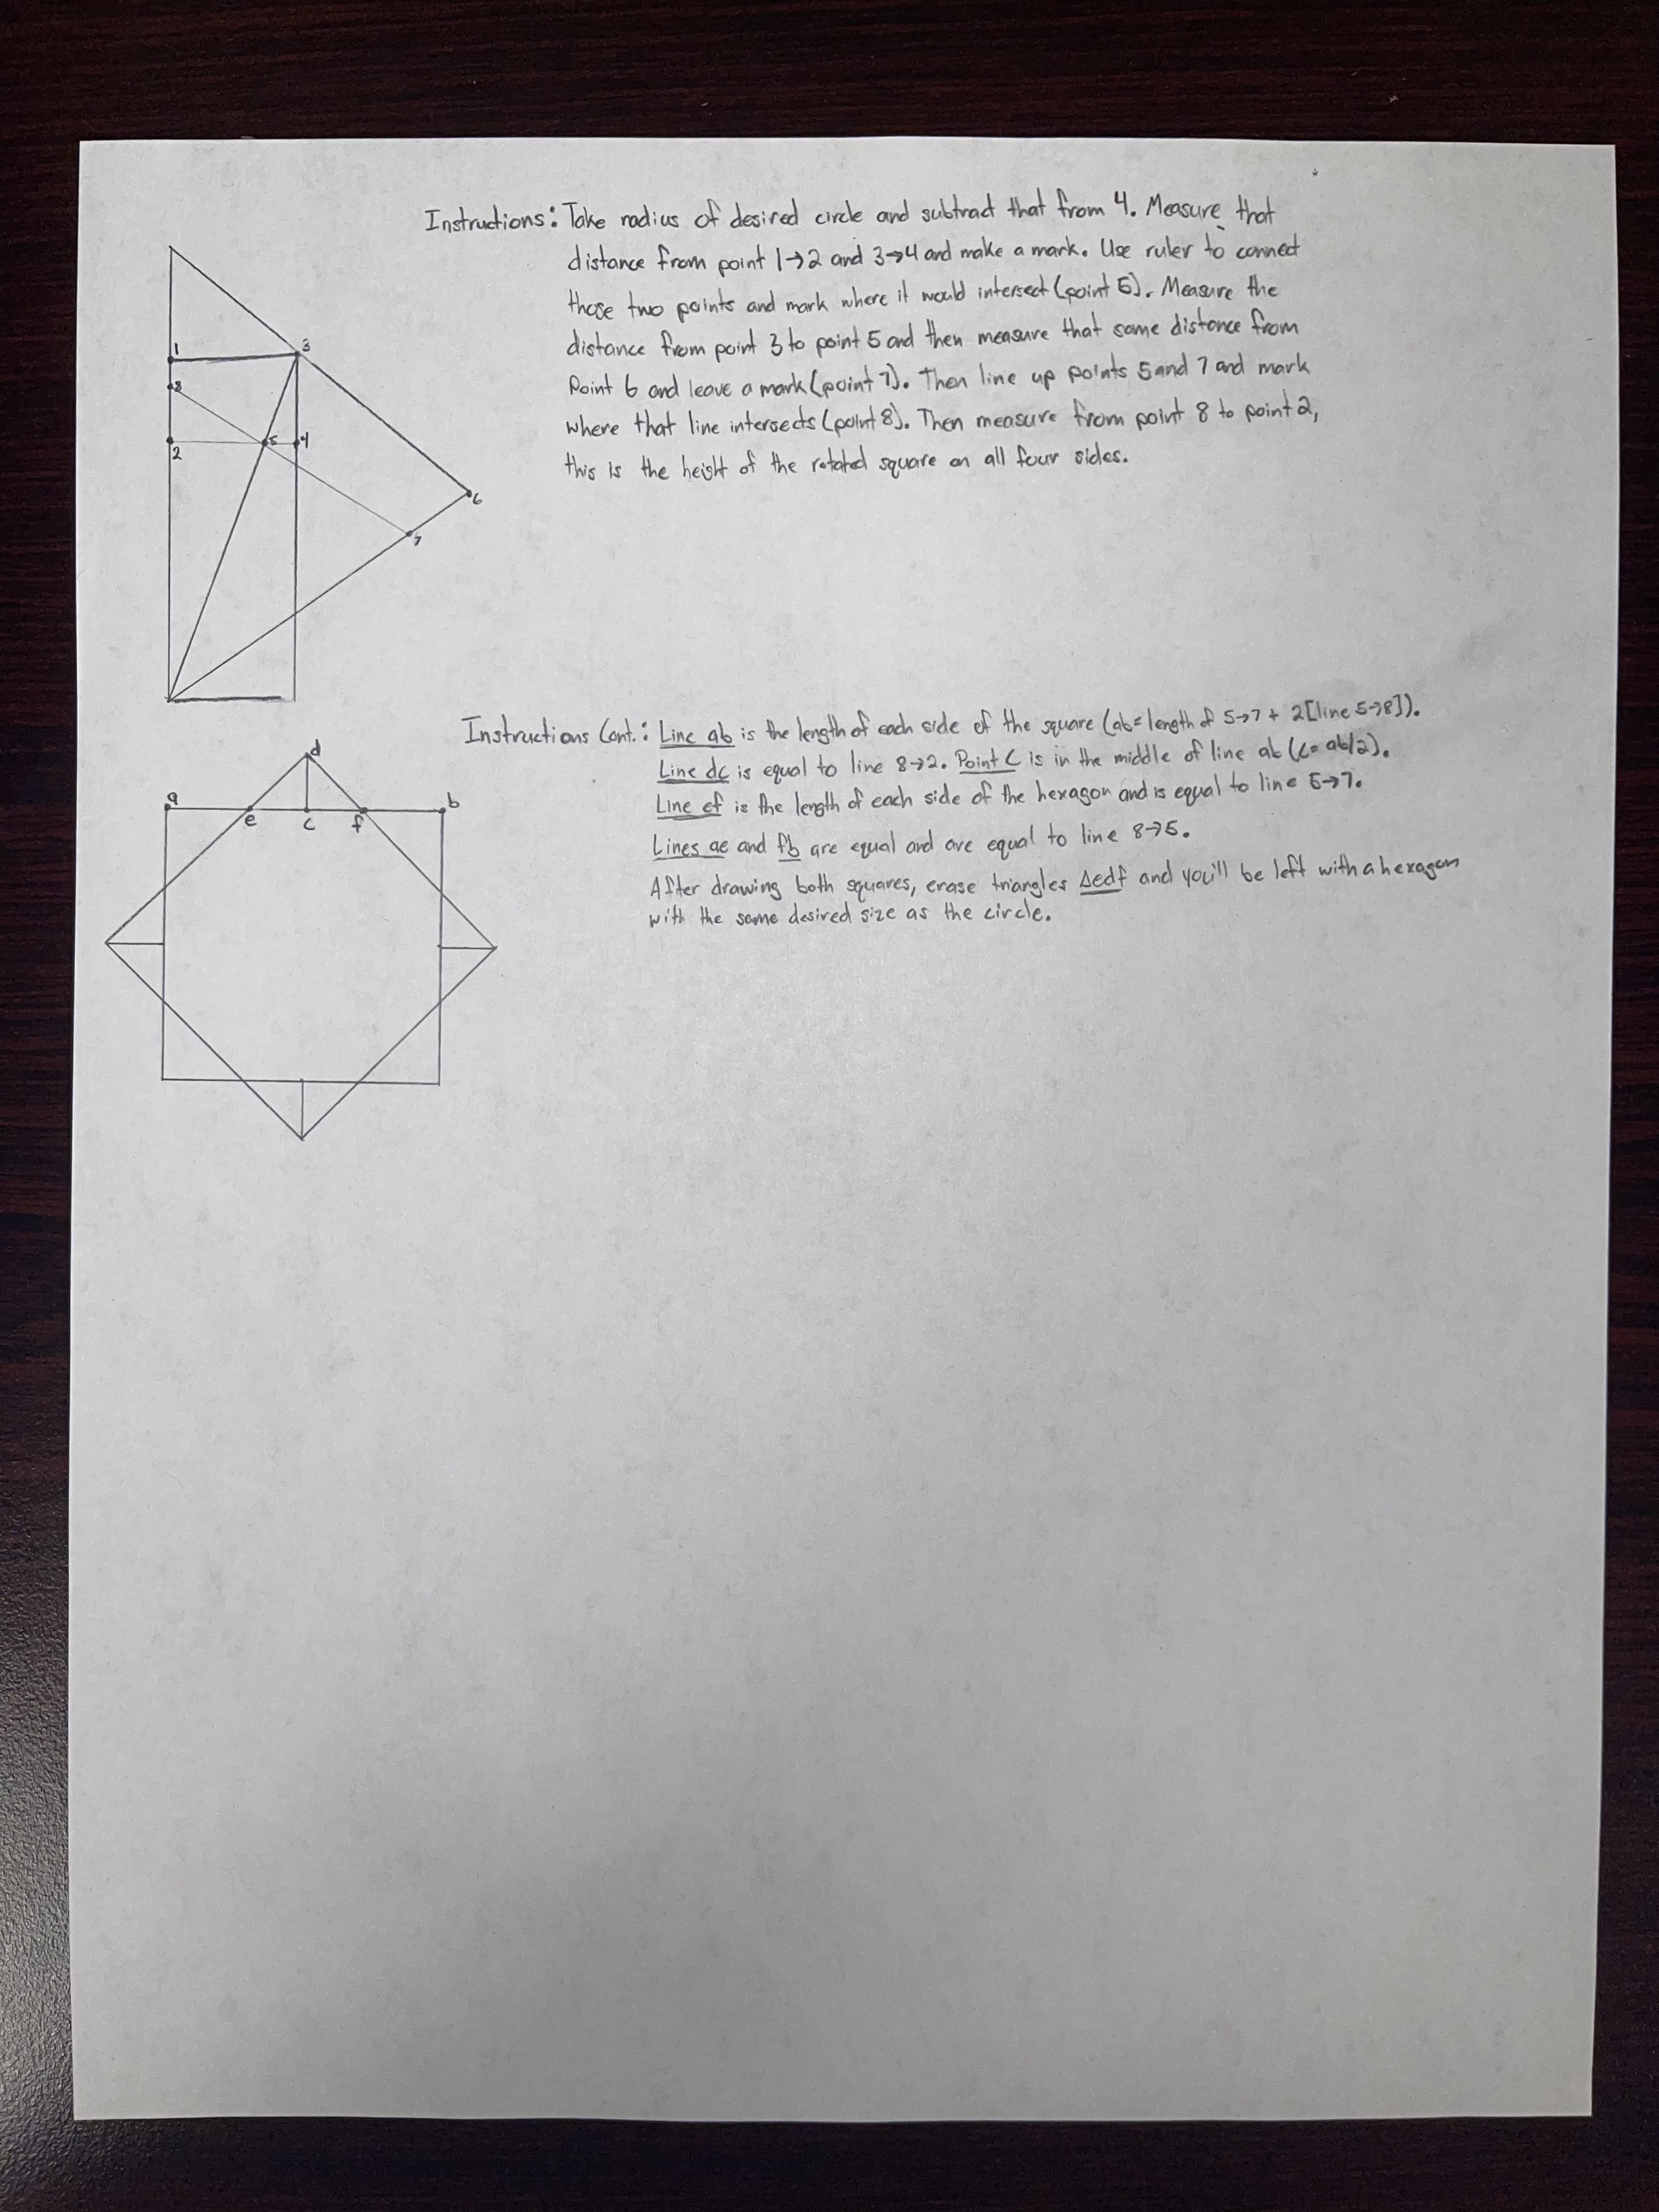 Instructions: Take radius of desired circle and subtract that from 4. Measure that
distance from point 1→2 and 3→4 and make a mark. Use ruler to connect
those two points and mark where it would intersect (point 5). Measure the
distance from point 3 to point 5 and then measure that same distance from
Point 6 and leave a mark (point 7). Then line up points 5 and 7 and mark
where that line intersects (point 8). Then measure from point 8 to point 2,
this is the height of the rotated square on all four sides.
1
3
8
2
5
4
6
7
Instructions Cont.: Line ab is the length of each side of the square (ab=length of 5→7 + 2[line 5→8]).
Line dc is equal to line 8→2. Point C is in the middle of line ab (c=ab/2).
Line ef is the length of each side of the hexagon and is equal to line 5→7.
Lines ae and fb are equal and are equal to line 8→5.
After drawing both squares, erase triangles Δedf and you'll be left with a hexagon
with the same desired size as the circle.
d
a
b
e
c
f